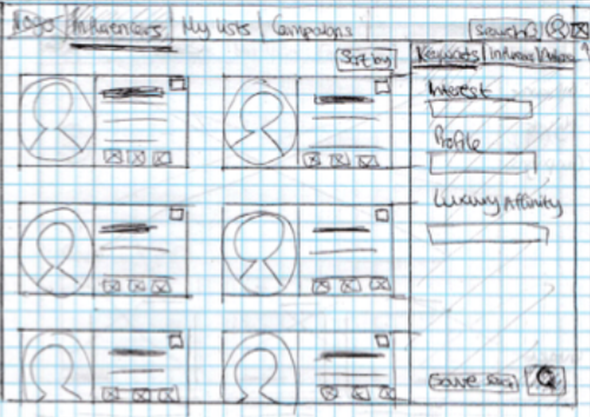 Logo Influencers My Lists Campaigns Search
Sort by Keywords Influence
Interest
Profile
Luxury Affinity
Save